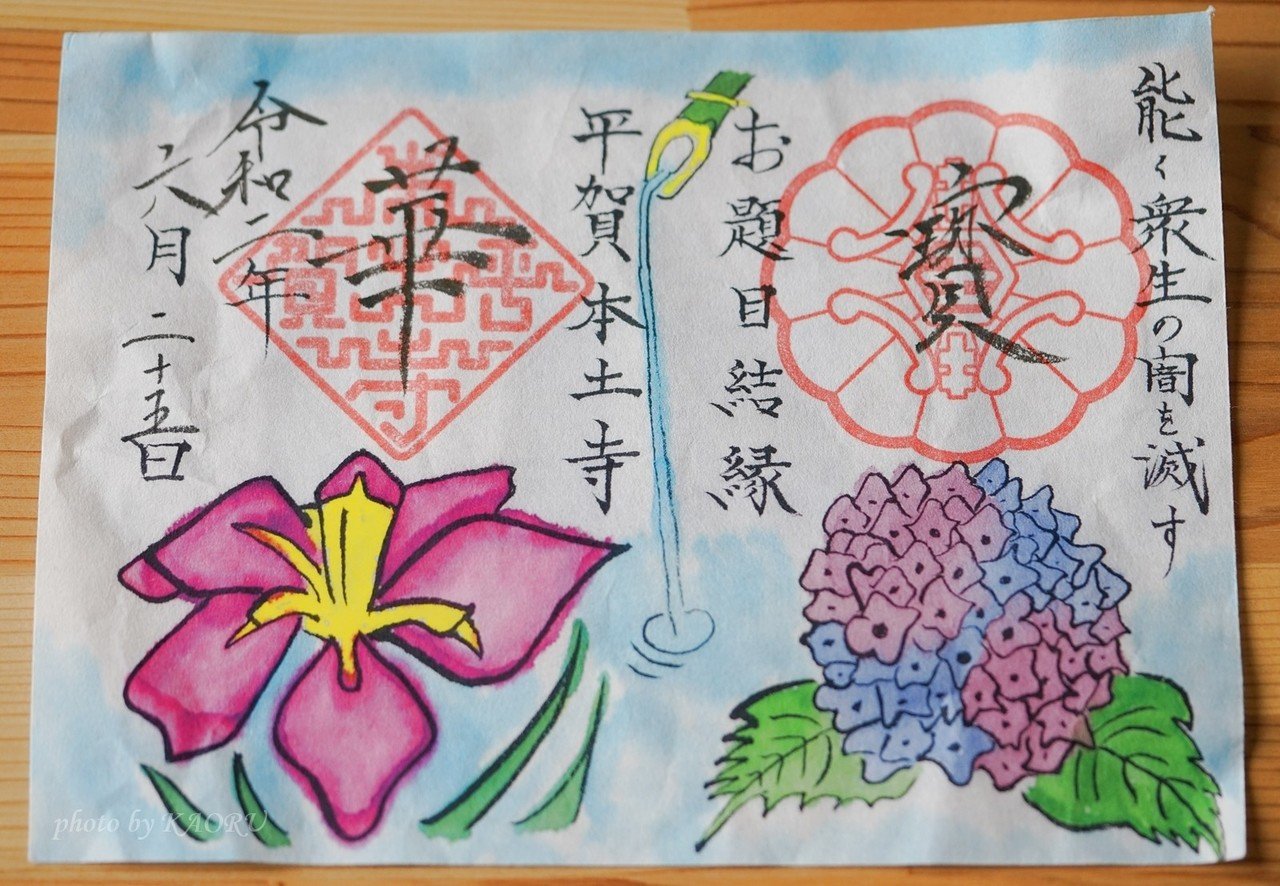 能く衆生の闇を滅す
寳
お題目結縁
平賀本土寺
華
令和二年
六月二十五日
photo by KAORU